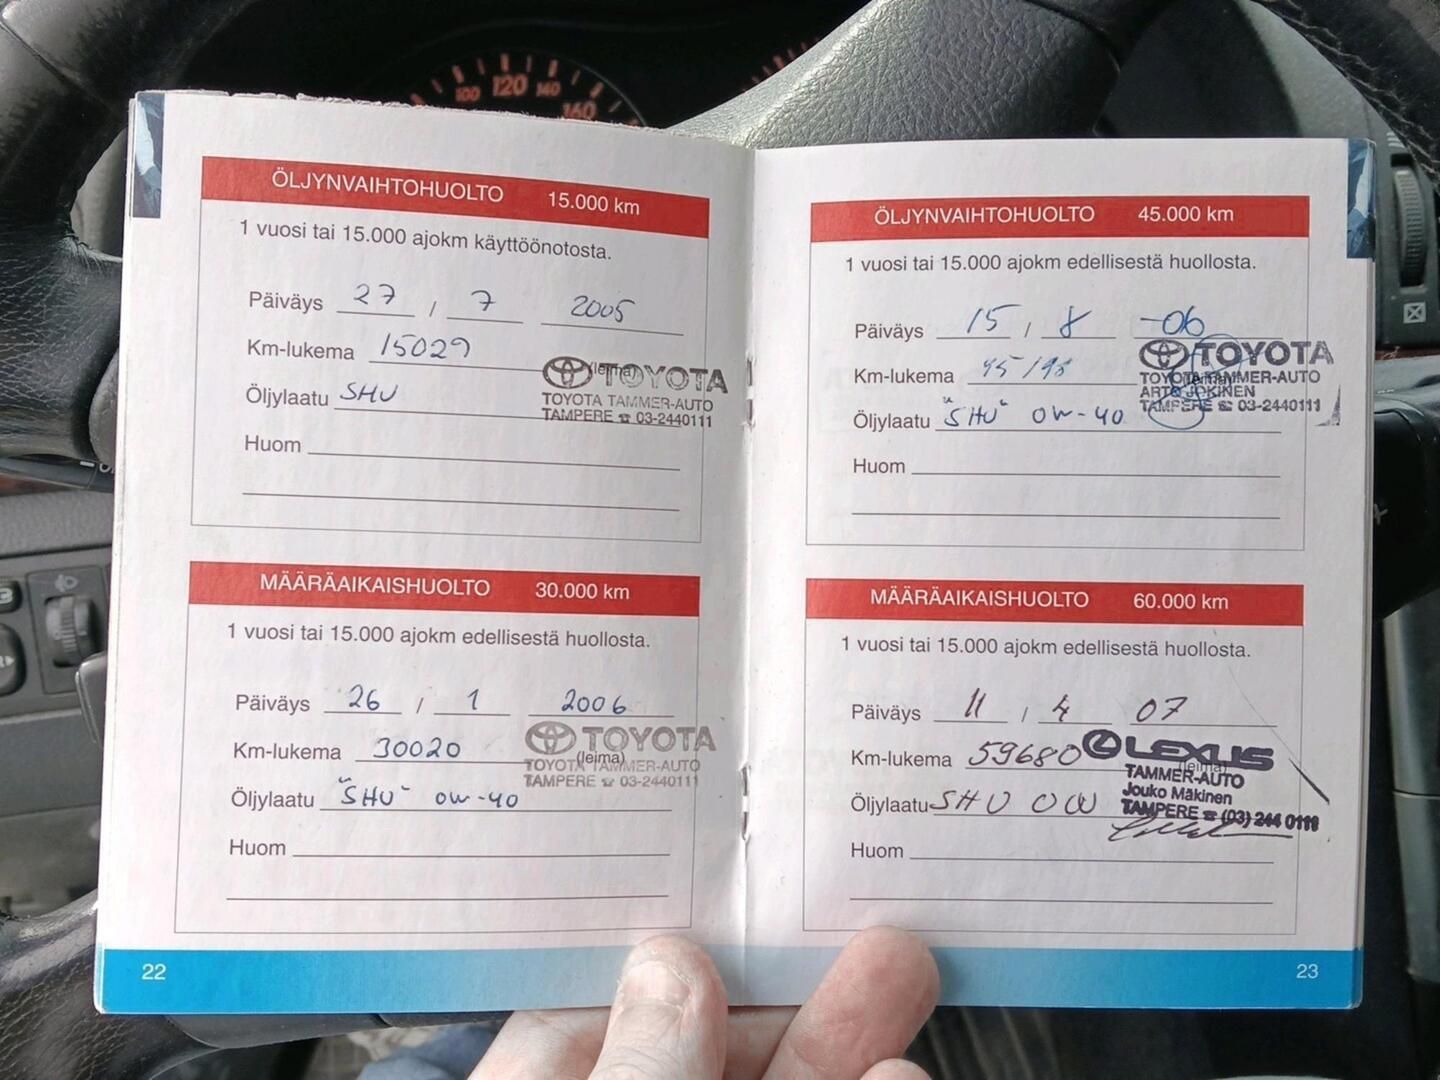 100 120 140 160
ÖLJYNVAIHTOHUOLTO 15.000 km
1 vuosi tai 15.000 ajokm käyttöönotosta.
Päiväys 27 / 7 2005
Km-lukema 15029
(leima)
TOYOTA
Öljylaatu SHU
TOYOTA TAMMER-AUTO
TAMPERE ☎ 03-2440111
Huom
MÄÄRÄAIKAISHUOLTO 30.000 km
1 vuosi tai 15.000 ajokm edellisestä huollosta.
Päiväys 26 / 1 2006
Km-lukema 30020
TOYOTA
(leima)
TOYOTA TAMMER-AUTO
TAMPERE ☎ 03-2440111
Öljylaatu "SHU" 0W-40
Huom
22
ÖLJYNVAIHTOHUOLTO 45.000 km
1 vuosi tai 15.000 ajokm edellisestä huollosta.
Päiväys 15 / 8 -06
TOYOTA
Km-lukema 45198
(leima)
TOYOTA TAMMER-AUTO
ARTO JOKINEN
TAMPERE ☎ 03-2440111
Öljylaatu "SHU" 0W-40
Huom
MÄÄRÄAIKAISHUOLTO 60.000 km
1 vuosi tai 15.000 ajokm edellisestä huollosta.
Päiväys 11 / 4 07
Km-lukema 59680
LEXUS
(leima)
TAMMER-AUTO
Jouko Mäkinen
TAMPERE ☎ (03) 244 0111
Öljylaatu SHU 0W
Huom
23